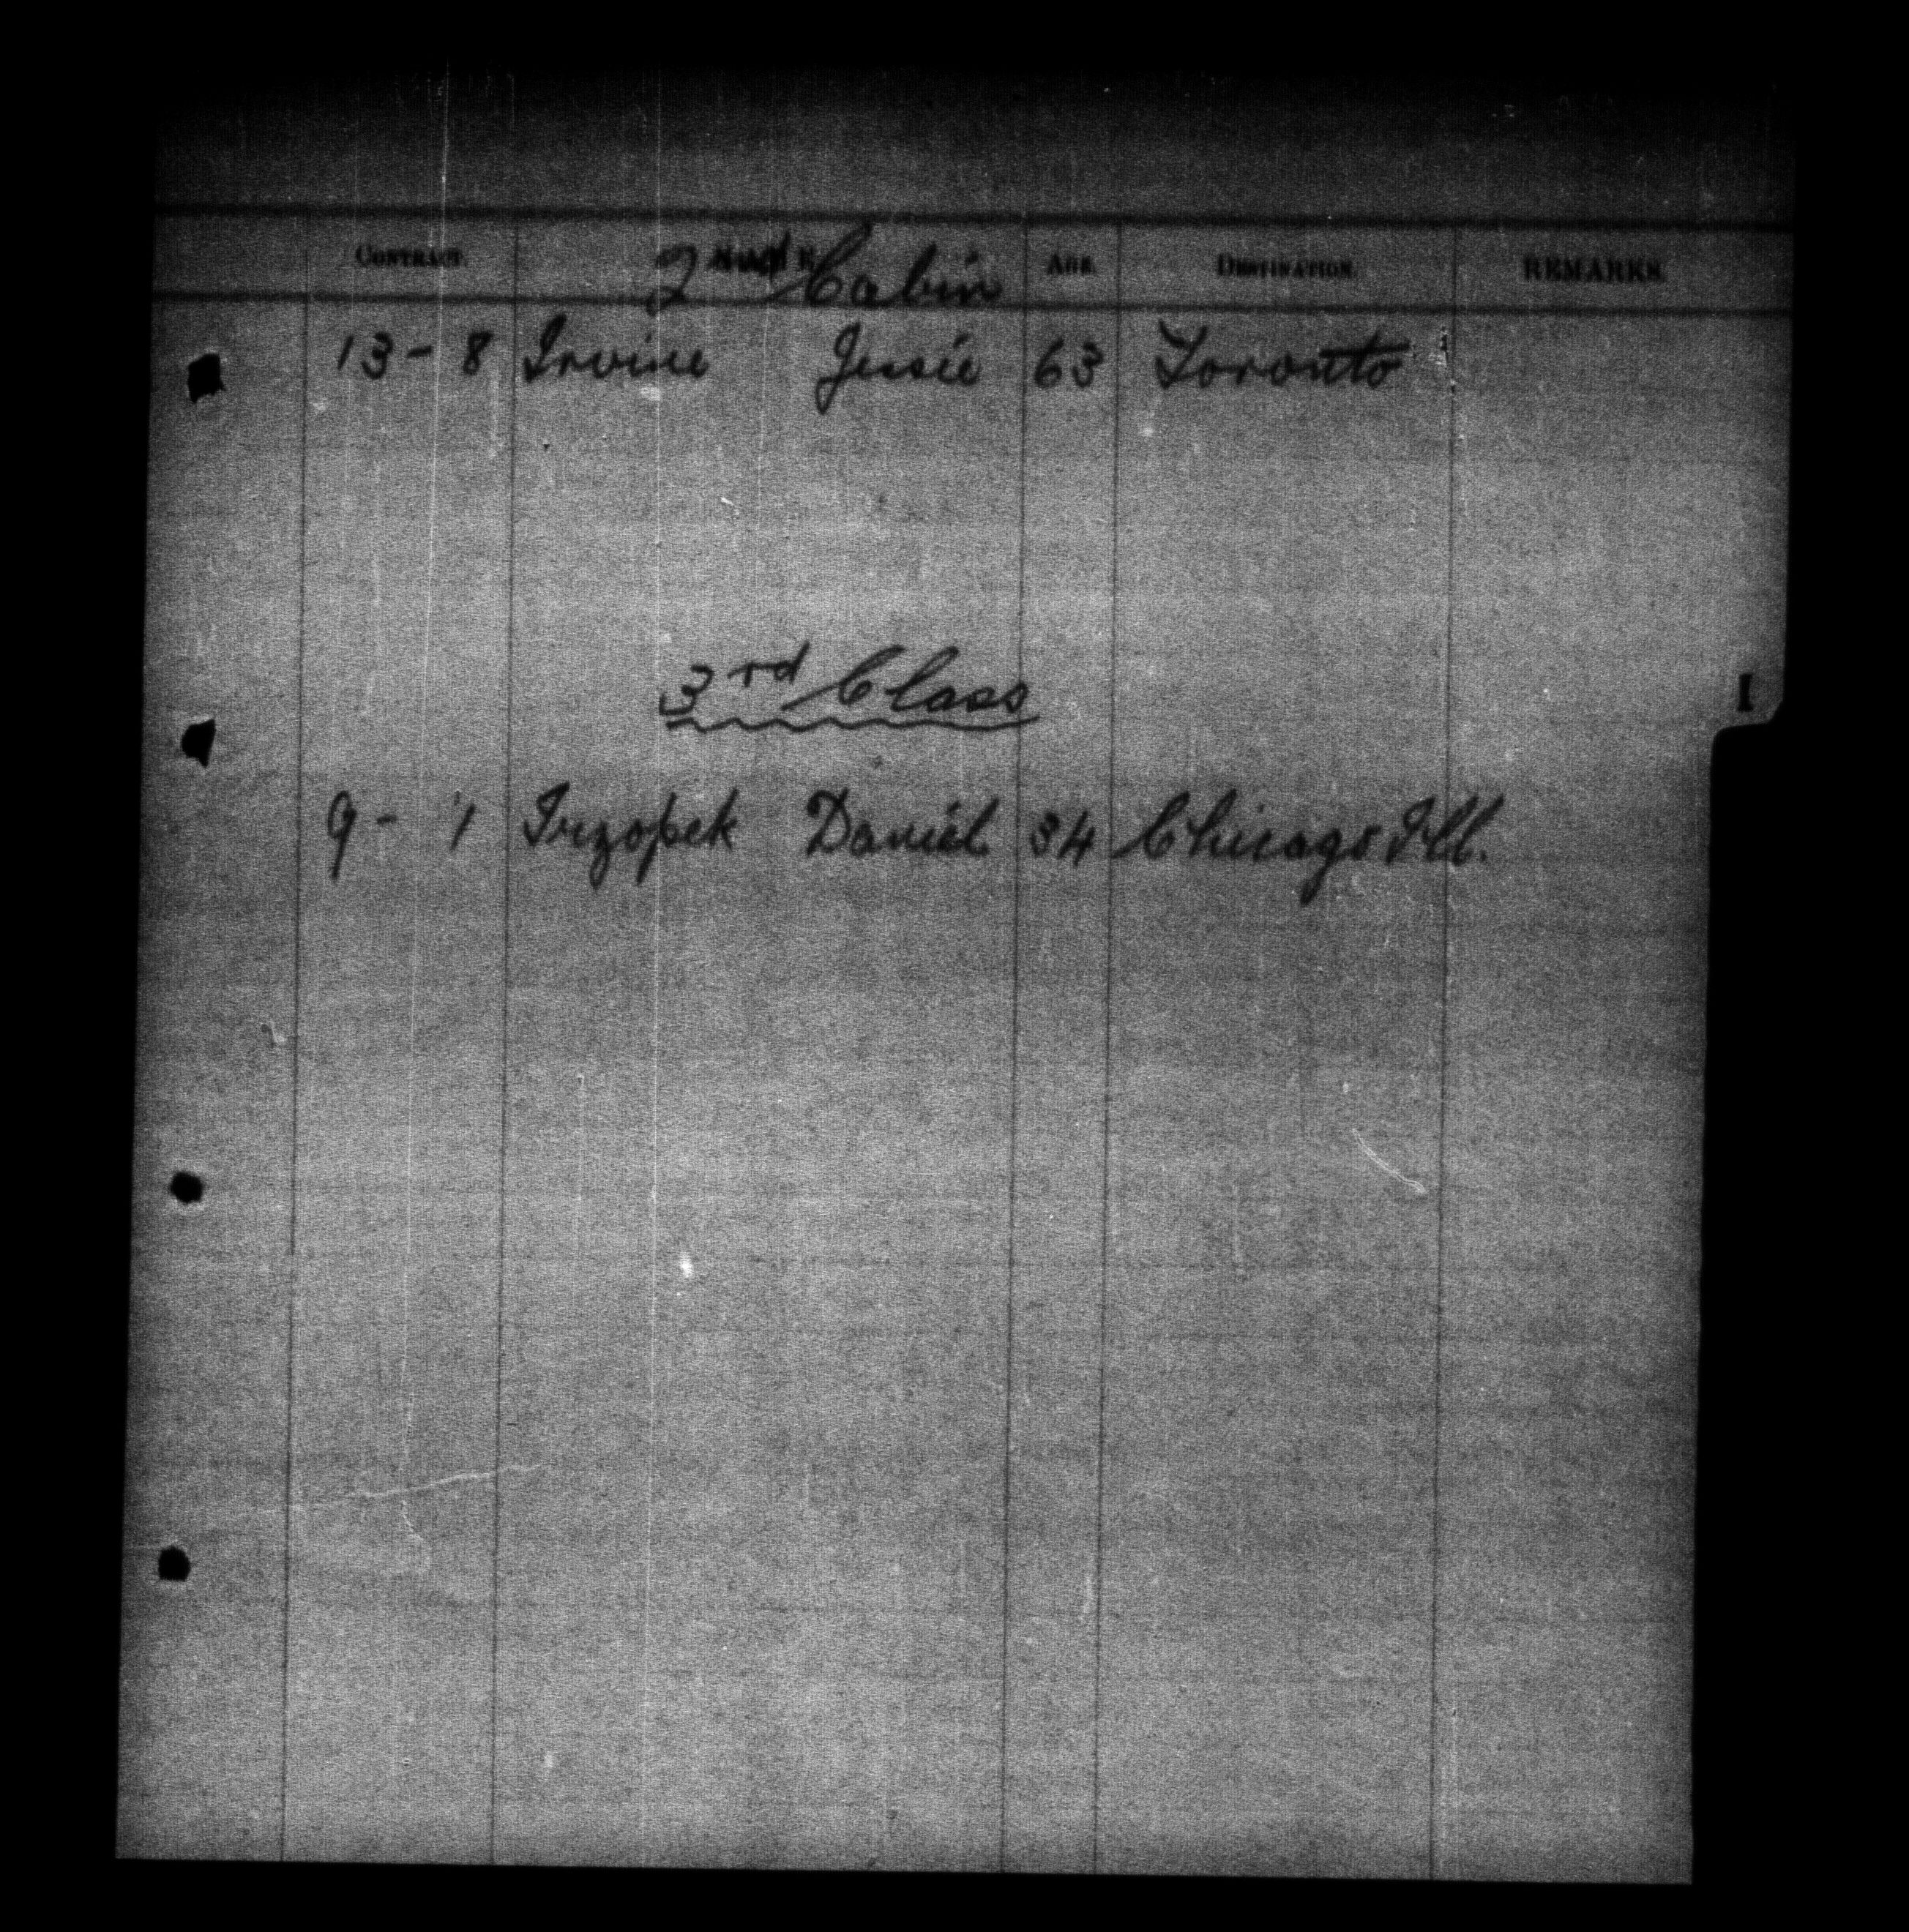 CONTRACT. NAME AGE. DESTINATION. REMARKS.
2nd Cabin
13 - 8 Irvine Jessie 63 Toronto
3rd Class
I
9 - 1 Irzopek Daniel 34 Chicago Ill.